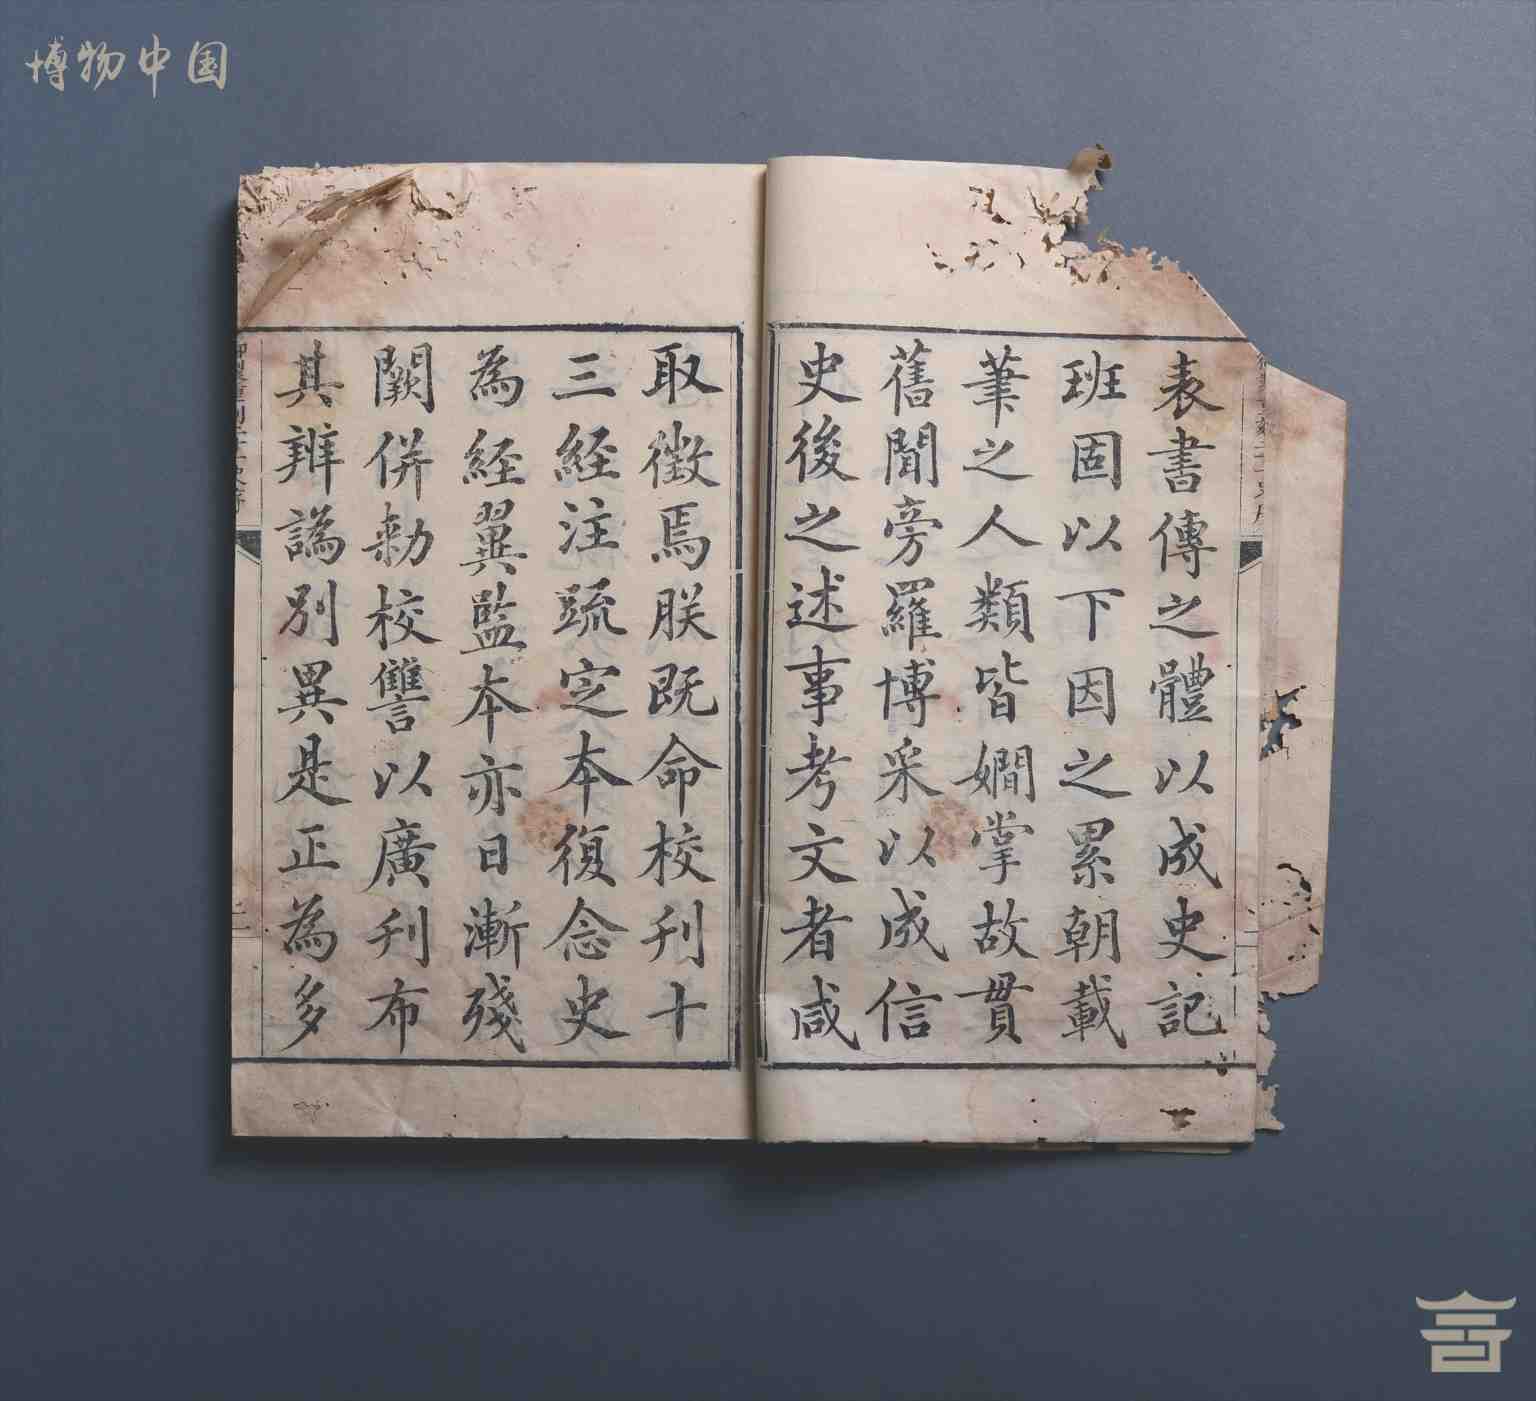 博物中国
表書傳之體以成史記
班固以下因之累朝載
筆之人類皆嫺掌故貫
舊聞旁羅博采以成信
史後之述事考文者咸
取徵焉朕既命校刊十
三經注疏定本復念史
為經翼監本亦日漸殘
闕併勑校讐以廣刊布
其辨譌別異是正為多